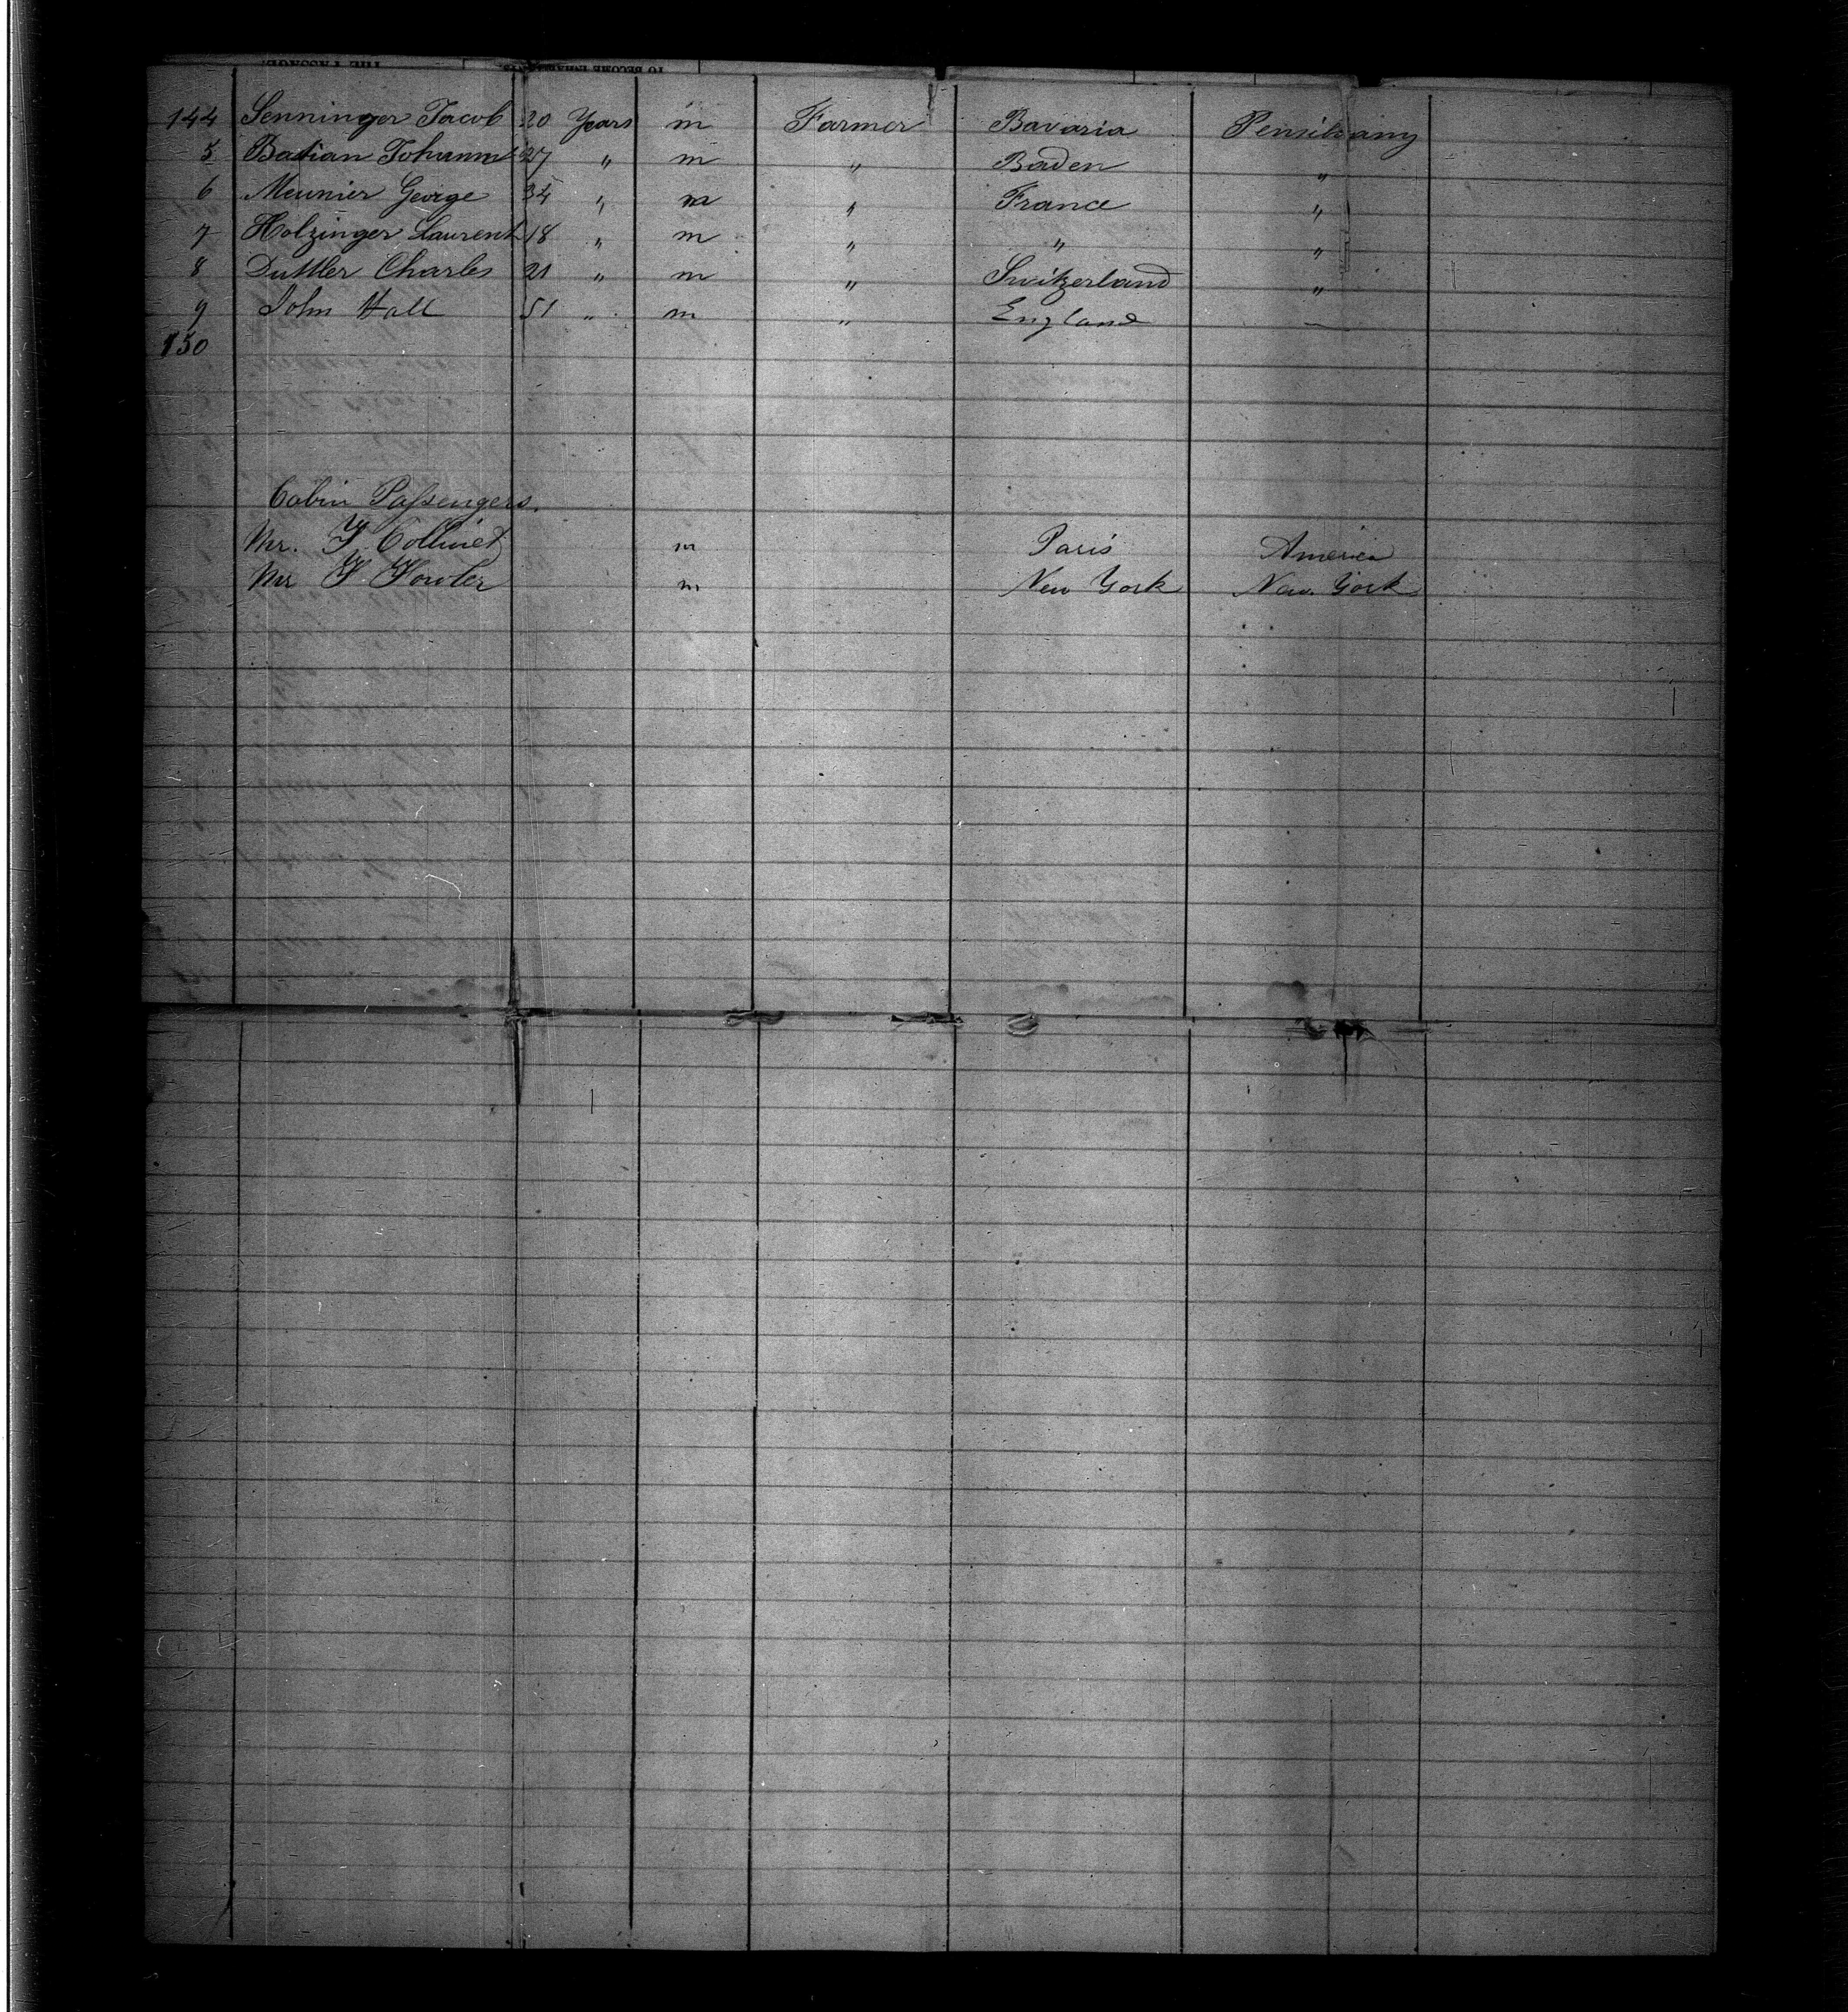 THE PASSAGE. TO BECOME INHABITANTS
144 Senninger Jacob 20 Years m Farmer Bavaria Pensilvany
5 Bastian Johannes 27 " m " Baden "
6 Meunier George 34 " m " France "
7 Holzinger Laurent 18 " m " " "
8 Duttler Charles 21 " m " Switzerland "
9 John Hall 51 " m " England —
150
Cabin Passengers.
Mr. F. Collinet m Paris America
Mr F. Fowler m New York New York